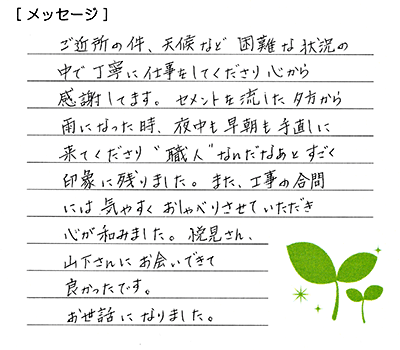 [ メッセージ ]
ご近所の件、天候など 困難な状況の
中で丁寧に仕事をしてくださり心から
感謝してます。セメントを流した夕方から
雨になった時、夜中も早朝も手直しに
来てくださり“職人”なんだなあとすごく
印象に残りました。また、工事の合間
には気やすく おしゃべりさせていただき
心が和みました。悦見さん、
山下さんにお会いできて
良かったです。
お世話になりました。